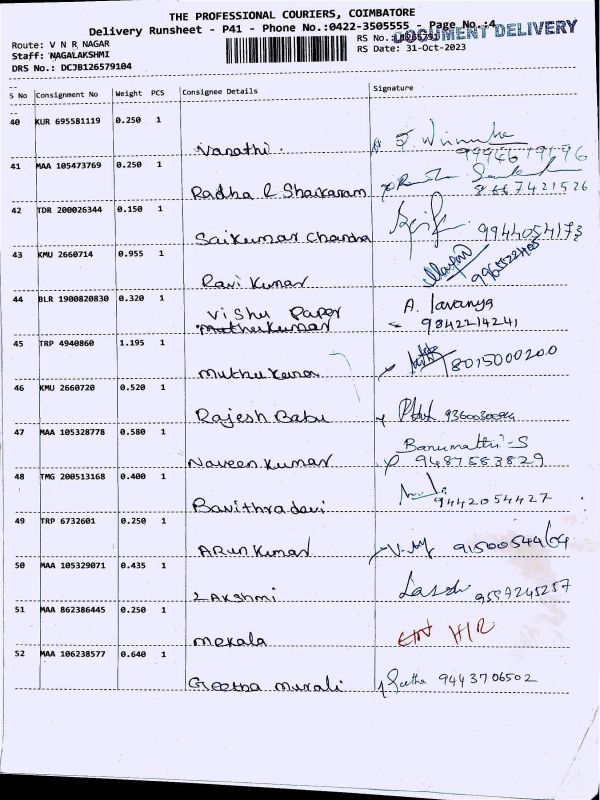 THE PROFESSIONAL COURIERS, COIMBATORE
Delivery Runsheet - P41 - Phone No.:0422-3505555 - Page No.:4
DOCUMENT DELIVERY
Route: V N R NAGAR
RS No.:
Staff: NAGALAKSHMI
RS Date: 31-Oct-2023
DRS No.: DCJB126579104
S No Consignment No Weight PCS Consignee Details Signature
40 KUR 695581119 0.250 1
Vanathi.
41 MAA 105473769 0.250 1
Radha R 8667421526
42 TDR 200026344 0.150 1
Saikumar Chandra 9944054173
43 KMU 2660714 0.955 1
Ravi Kumar
44 BLR 1900820830 0.320 1
Vishu Paper A. lavanya
Muthukumar 9842214241
45 TRP 4940860 1.195 1
8015000200
46 KMU 2660720 0.520 1
Rajesh Babu
47 MAA 105328778 0.580 1
Banumathi-S
Naveen Kumar 9487563829
48 TMG 200513168 0.400 1
Bavithradevi 9442054427
49 TRP 6732601 0.250 1
Arun Kumar
50 MAA 105329071 0.435 1
Lakshmi
51 MAA 862386445 0.250 1
mekala
52 MAA 106238577 0.640 1
Geetha murali Geetha 9443706502